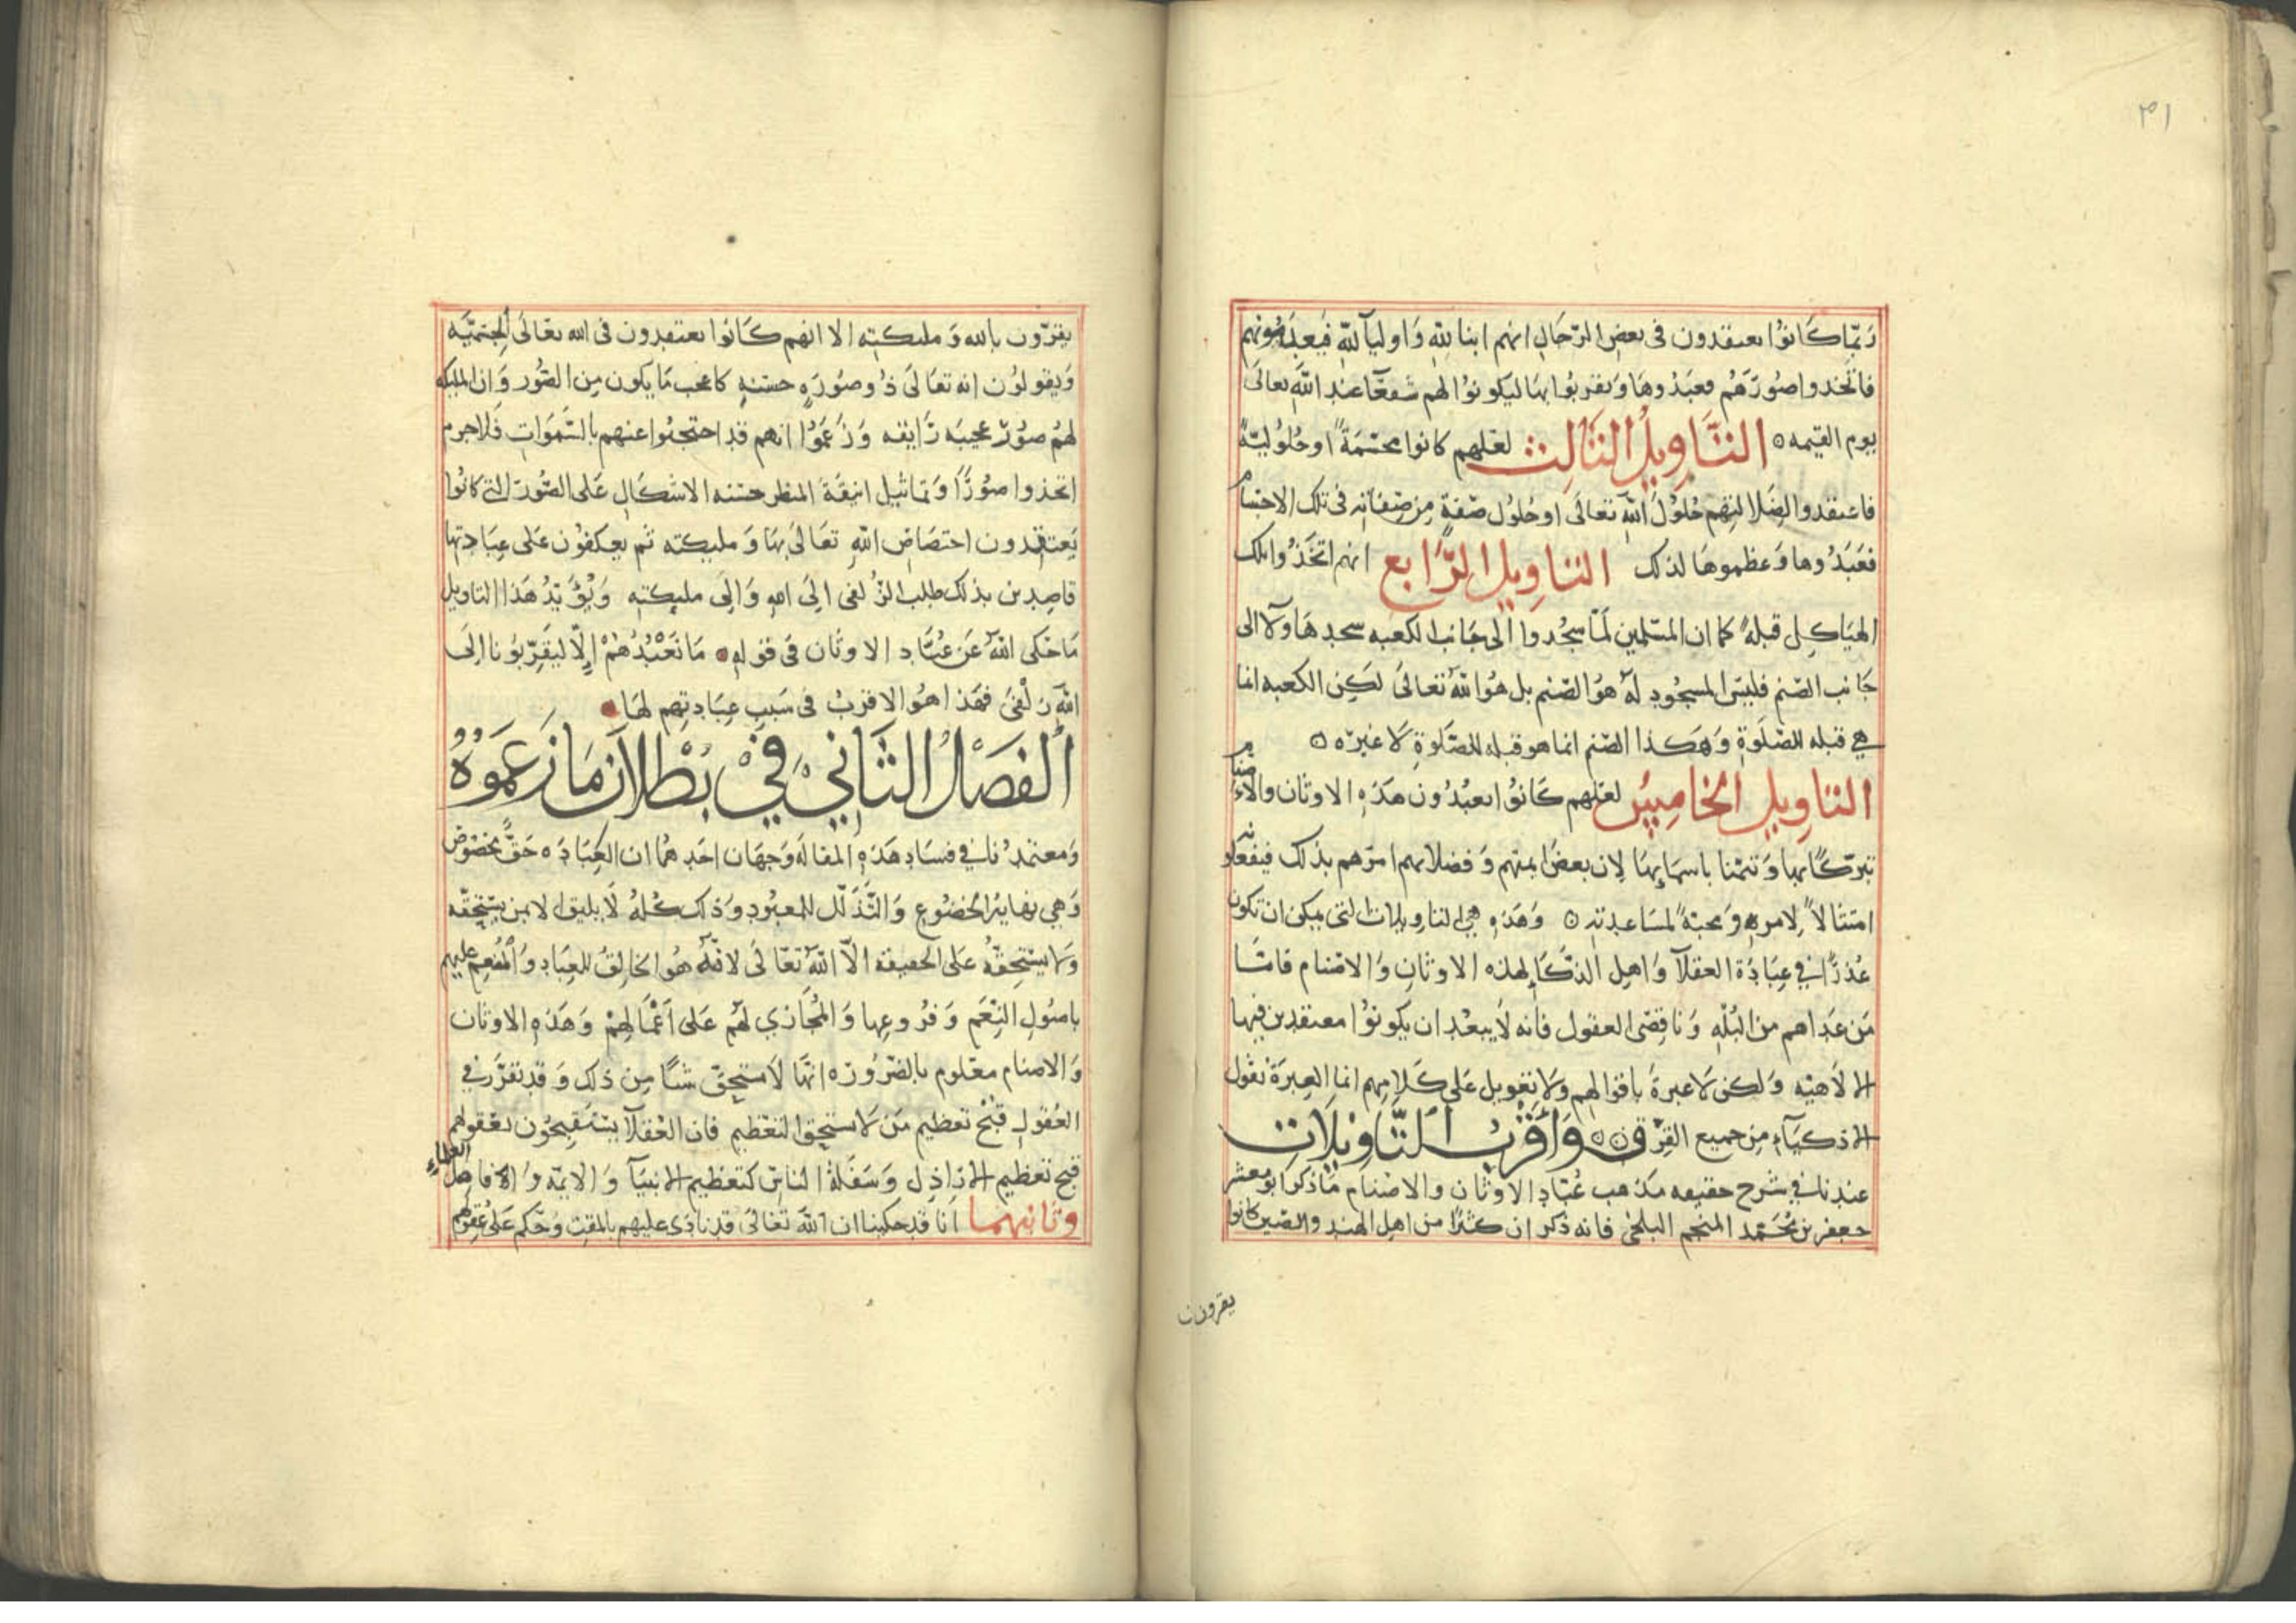 ٣١
ربّما كانوا يعتقدون فى بعض الرجال انهم ابنا لله واوليآ لله فيعبدونهم
فاتخذوا صُورَهُم فعبَدُوها وتقربُوا بها ليكونوا لهم شفعآ عند الله تعالى
يوم القيمه ٥ التَّاوِيلُ الثَالِث لعلهم كانوا مجسّمَةً او حُلُوليّةً
فاعتقدوا لضَلالتهم حُلوُلَ الله تعالى او حُلول صفةٍ من صِفاته فى تلك الاجسام
فعَبَدُوها وَعظموها لذلك التاويل الرّابع انهم اتخَذوا تلك
الهيَاكِل قبلةً كما ان المسلمين لَمّا سجُدوا الى جَانب الكعبه سجدهَاولآ الى
جَانب الصّنم فليس المسجُودِ لهُ هوُ الصّنم بل هوُ الله تعالىَ لكِن الكعبه انما
هي قبله للصّلوةِ وَهكذا الصّنم انما هو قبله للصّلوةِ لا غيره ٥
التاويل الخامِس لعلهم كانوُا يعبُدُون هَذه الاوثان والاصنام
تبرّكًا بها وَتيمّنا باسمآئهَا لِان بعضُ ائمتهم وَفضلائهم امرَهم بذلك فيفعلونه
امتثالاً لامره وَمحبةً لمسَاعدته ٥ وَهَذهِ هيَ التاويلات التى يمكن ان تكون
عُذرًا في عِبَادَة العقلآ وَاهل الذكآءِ لهذه الاوثانِ وَالاصنام فامّا
مَن عَداهم من البُلهِ وَناقِصى العقول فانه لَا يبعْد ان يكونوُا معتقدين فيها
الالاهيّه وَلكن لا عبرةَ باقوالهم وَلا تعويل عَلى كَلامِهم انما العِبرَة بقول
الاذكيآءِ مِن جميع الفِرَق ٥٥ وَاَقْرَبُ التَّاوِيْلَاتِ
عندنا في شرح حقيقه مَذهب عُبّادِ الاوثان والاصنام مَا ذكر ابو معشر
جعفر بن مُحَمّد المنجم البلخى فانه ذكر ان كثيرًا من اهل الهند والصّين كانوا
يقرون
يقرّون بالله وَمليكته الا انهم كَانوا يعتقدون فى الله تعَالى الجسميّه
وَيقولوُن انه تعَالَى ذُو صوُرَهٍ حسَنهٍ كاعجب مَا يكون مِن الصّوُر وَان المليكه
لهُم صوُرٌ عجيبَه رَايقه وَزعَموُا انهم قد احتجبوُا عنهم بالسّمَوَات فلا جرم
اتخذوا صوُرًا وَتماثيل انيقةَ المنظر حسَنه الاشكالِ عَلى الصّورَ التى كانوُا
يَعتقدون اختصَاصَ اللهِ تعَالىَ بهَا وَمليكته ثم يعكفوُن عَلى عِبَادتها
قاصِدين بذلك طلب الزُلفى الىَ اللهِ وَالىَ مليكتهِ وَيُؤيّدُ هَذا التاويل
مَا حَكى اللهُ عَن عُبّاد الاوثان فى قولهِ مَا نَعْبُدُهُمْ إلّا ليُقَرّبوُنا الىَ
الله زلْفىَ فهَذا هوُ الاقربُ فى سَببِ عِبَادتِهم لهَا
اَلفَصْلُ الثَانِيْ فِيْ بُطْلَانِ مَا زَعَموُهُ
وَمعتمدُنا في فسَادِ هَذهِ المقالهَ وَجهَان احَدهُما ان العِبَادَه حَقٌّ مخصُوصٌ
وَهي نهاية الخضوُعِ وَالتّذَلّل للمعبُودِ وَذلك كلهُ لَا يليق الا بمن يسْتحِقّه
وَلا يسْتحِقّهُ عَلى الحقيقه الّا اللهُ تعَالىَ لانّهُ هوُ الخالِقُ للعِبَادِ وَالمُنعم عليهم
باصُولِ النِعَم وَفرُوعِها وَالمُجَازي لهُم عَلى اَعْمالِهِمْ وَهَذهِ الاوثان
وَالاصنام معْلوم بالضّرُورَه انّها لَا تستحِقّ شيأً مِن ذلك وَقد تقرّر في
العُقولِ قُبْحُ تعظيمِ مَن لا يستحِق التعْظيمِ فان العْقلآ يَسْتقبِحُون بعقولهم
قبح تعظيم الارَاذِل وَسَفلةُ الناس كتعظيم الانبيَآ وَالايمّه وَالافاضل العلمآءِ
وثَانِيهمَا انا قد حكينا ان اللهَ تعَالىَ قد نادَى عليهم بالمقت وَحُكم عَلى عقولِهم